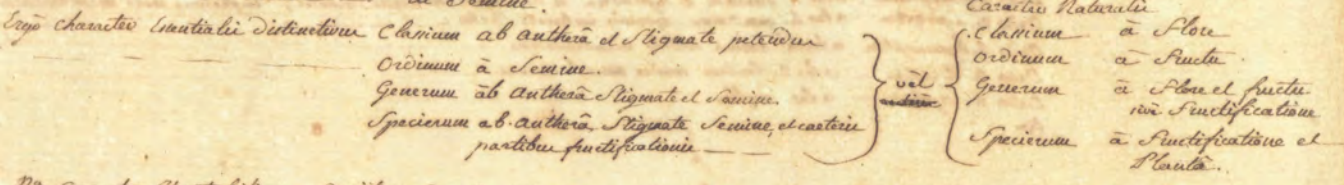 Caracter Naturalis
Ergo character Essentialis distinctivus Classium ab antherâ et Stigmate petendus
Ordinum à Semine.
Generum ab antherâ Stigmate et Semine.
Specierum ab antherâ, Stigmate Semine, et caeteris
partibus fructificationis
vèl
Classium à Flore
Ordinum à Fructu.
Generum à Flore et fructu
sivè Fructificatione
Specierum à Fructificatione et
Plantâ.